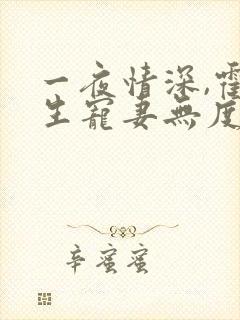 一夜情深,霍
生寵妻無度
辛蜜蜜